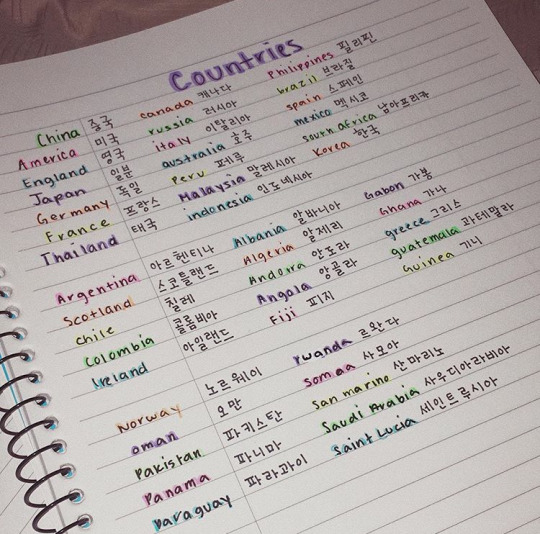 Countries
China 중국
America 미국
England 영국
Japan 일본
Germany 독일
France 프랑스
Thailand 태국
canada 캐나다
russia 러시아
italy 이탈리아
australia 호주
Peru 페루
Malaysia 말레시아
indonesia 인도네시아
Philippines 필리핀
brazil 브라질
spain 스페인
mexico 멕시코
south africa 남아프리카
Korea 한국
Argentina 아르헨티나
Scotland 스코틀랜드
Chile 칠레
Colombia 콜롬비아
Ireland 아일랜드
Albania 알바니아
Algeria 알제리
Andorra 안도라
Angola 앙골라
Fiji 피지
Gabon 가봉
Ghana 가나
greece 그리스
guatemala 과테말라
Guinea 기니
Norway 노르웨이
oman 오만
Pakistan 파키스탄
Panama 파니마
Paraguay 파라과이
rwanda 르완다
somaa 사모아
san marino 산마리노
Saudi Arabia 사우디아라비아
Saint Lucia 세인트루시아